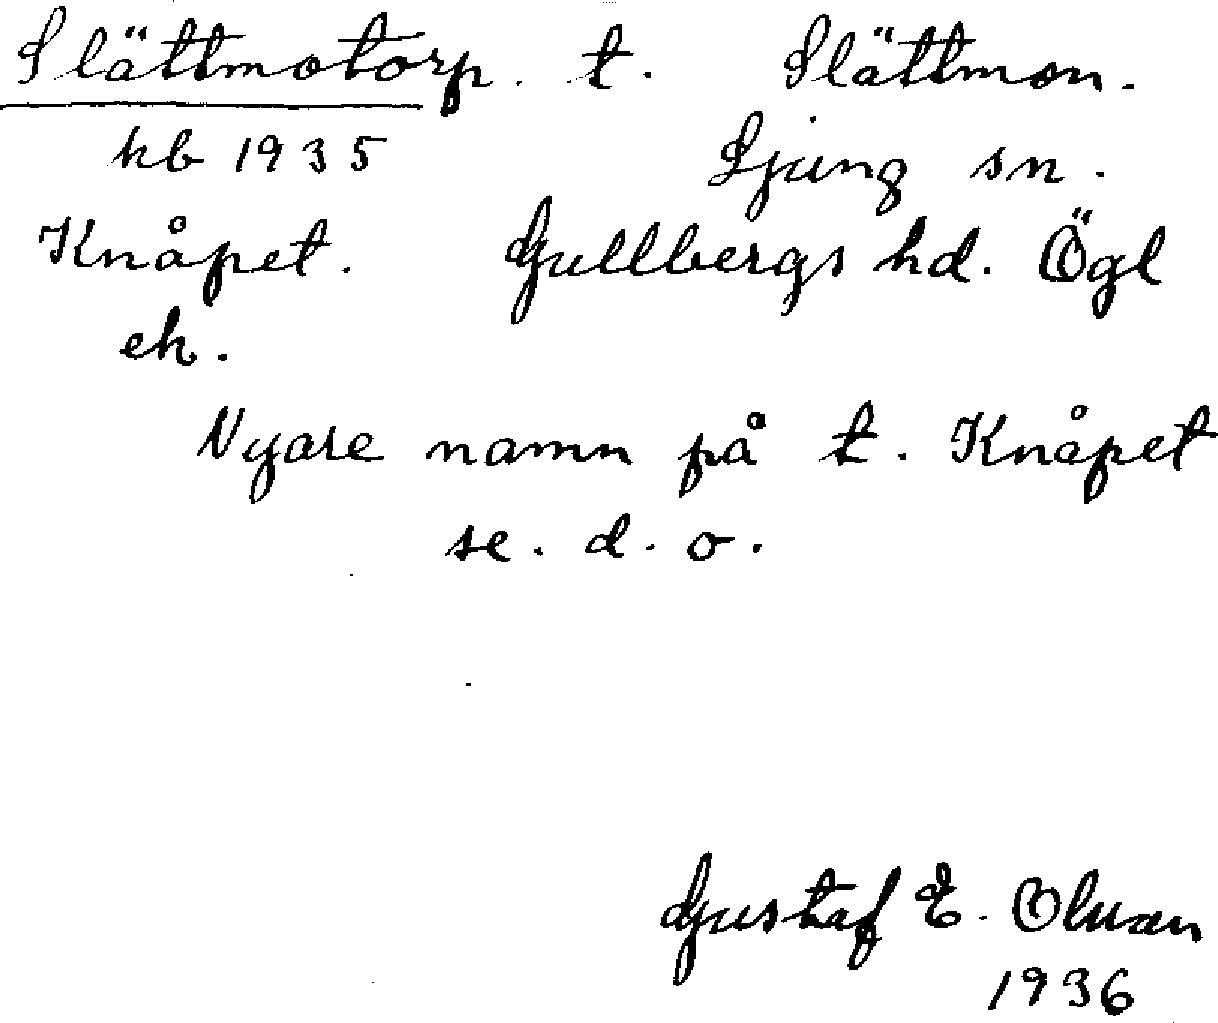 Slättmotorp. t. Slättmon.
kb 1935 Ljung sn.
Knåpet. Gullbergs hd. Ögl
ek.
Nyare namn på t. Knåpet
se. d. o.
Gustaf E. Olman
1936